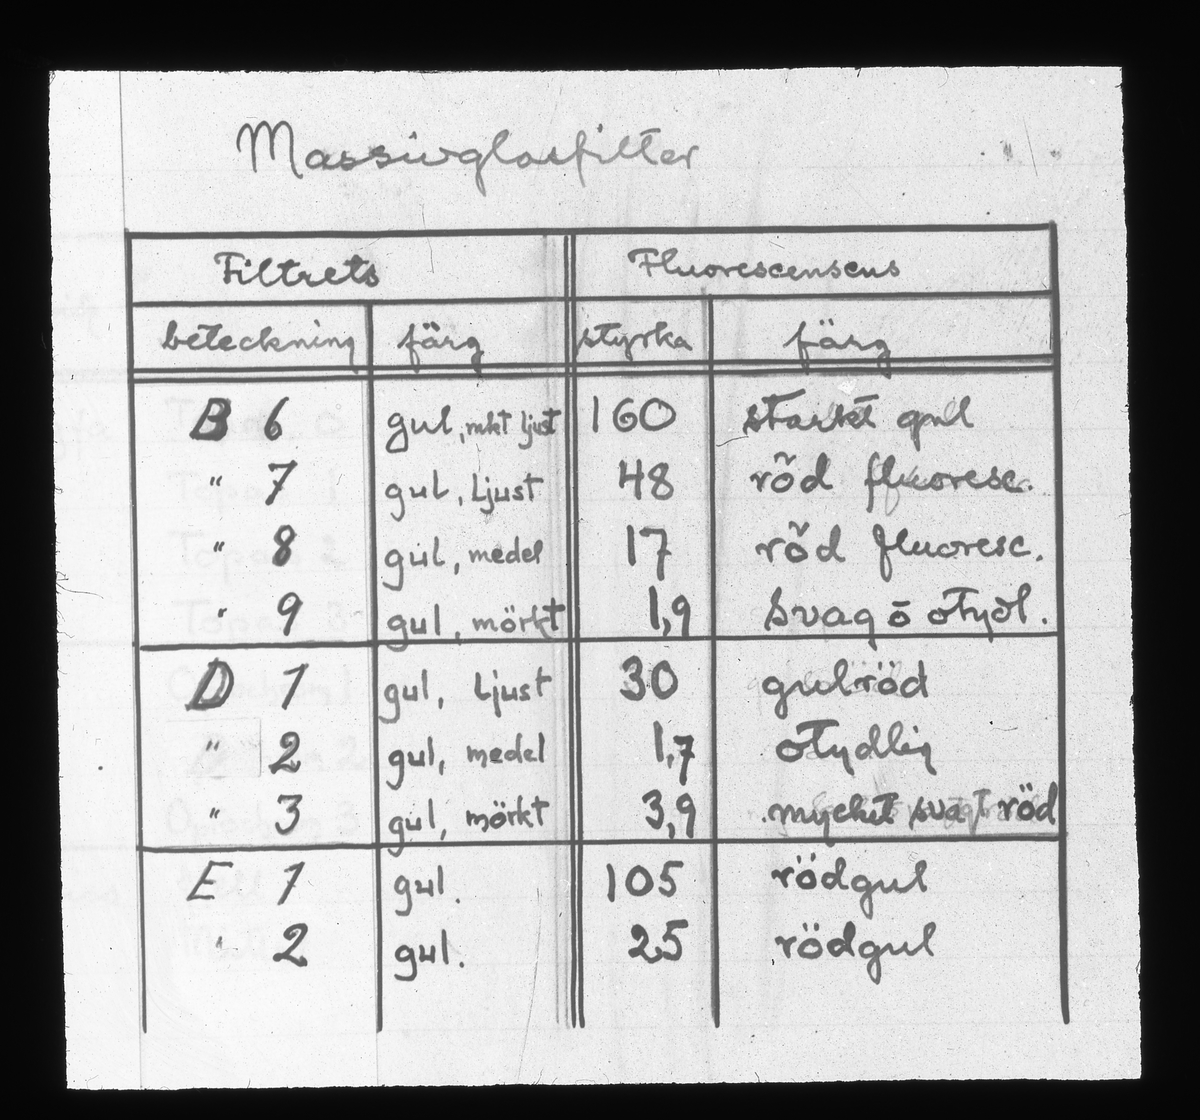 Massivglasfilter
Filtrets Fluorescensens
beteckning färg styrka färg
B 6 gul, mkt ljust 160 starkt gul
" 7 gul, Ljust 48 röd fluoresc.
" 8 gul, medel 17 röd fluoresc.
" 9 gul, mörkt 1,9 svag o otydl.
D 1 gul, Ljust 30 gulröd
" 2 gul, medel 1,7 otydlig
" 3 gul, mörkt 3,9 mycket svagt röd
E 1 gul. 105 rödgul
" 2 gul. 25 rödgul